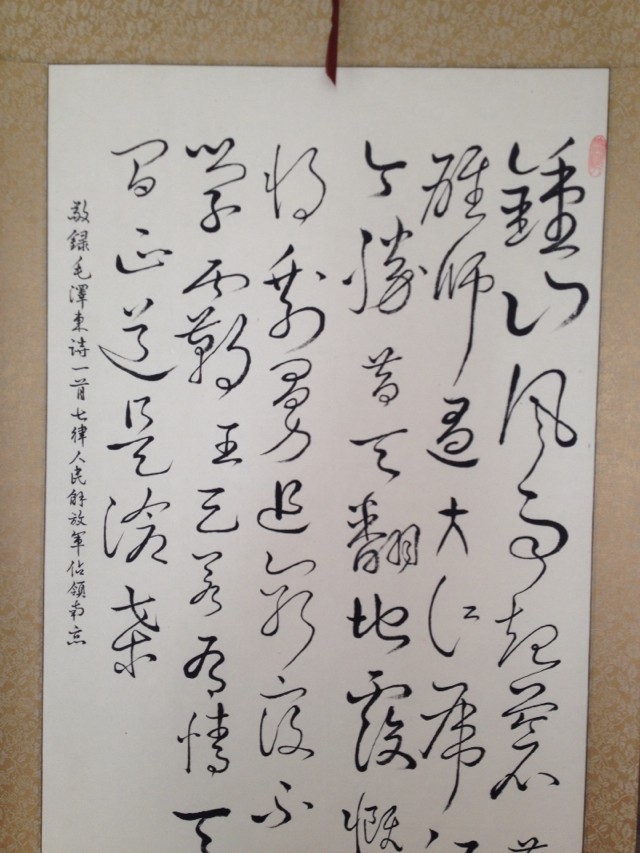 鍾山風雨起蒼
雄師過大江虎
今勝昔天翻地覆慨
將剩勇追窮寇不
学霸王天若有情天
間正道是滄桑
敬録毛澤東诗一首七律人民解放軍佔領南京